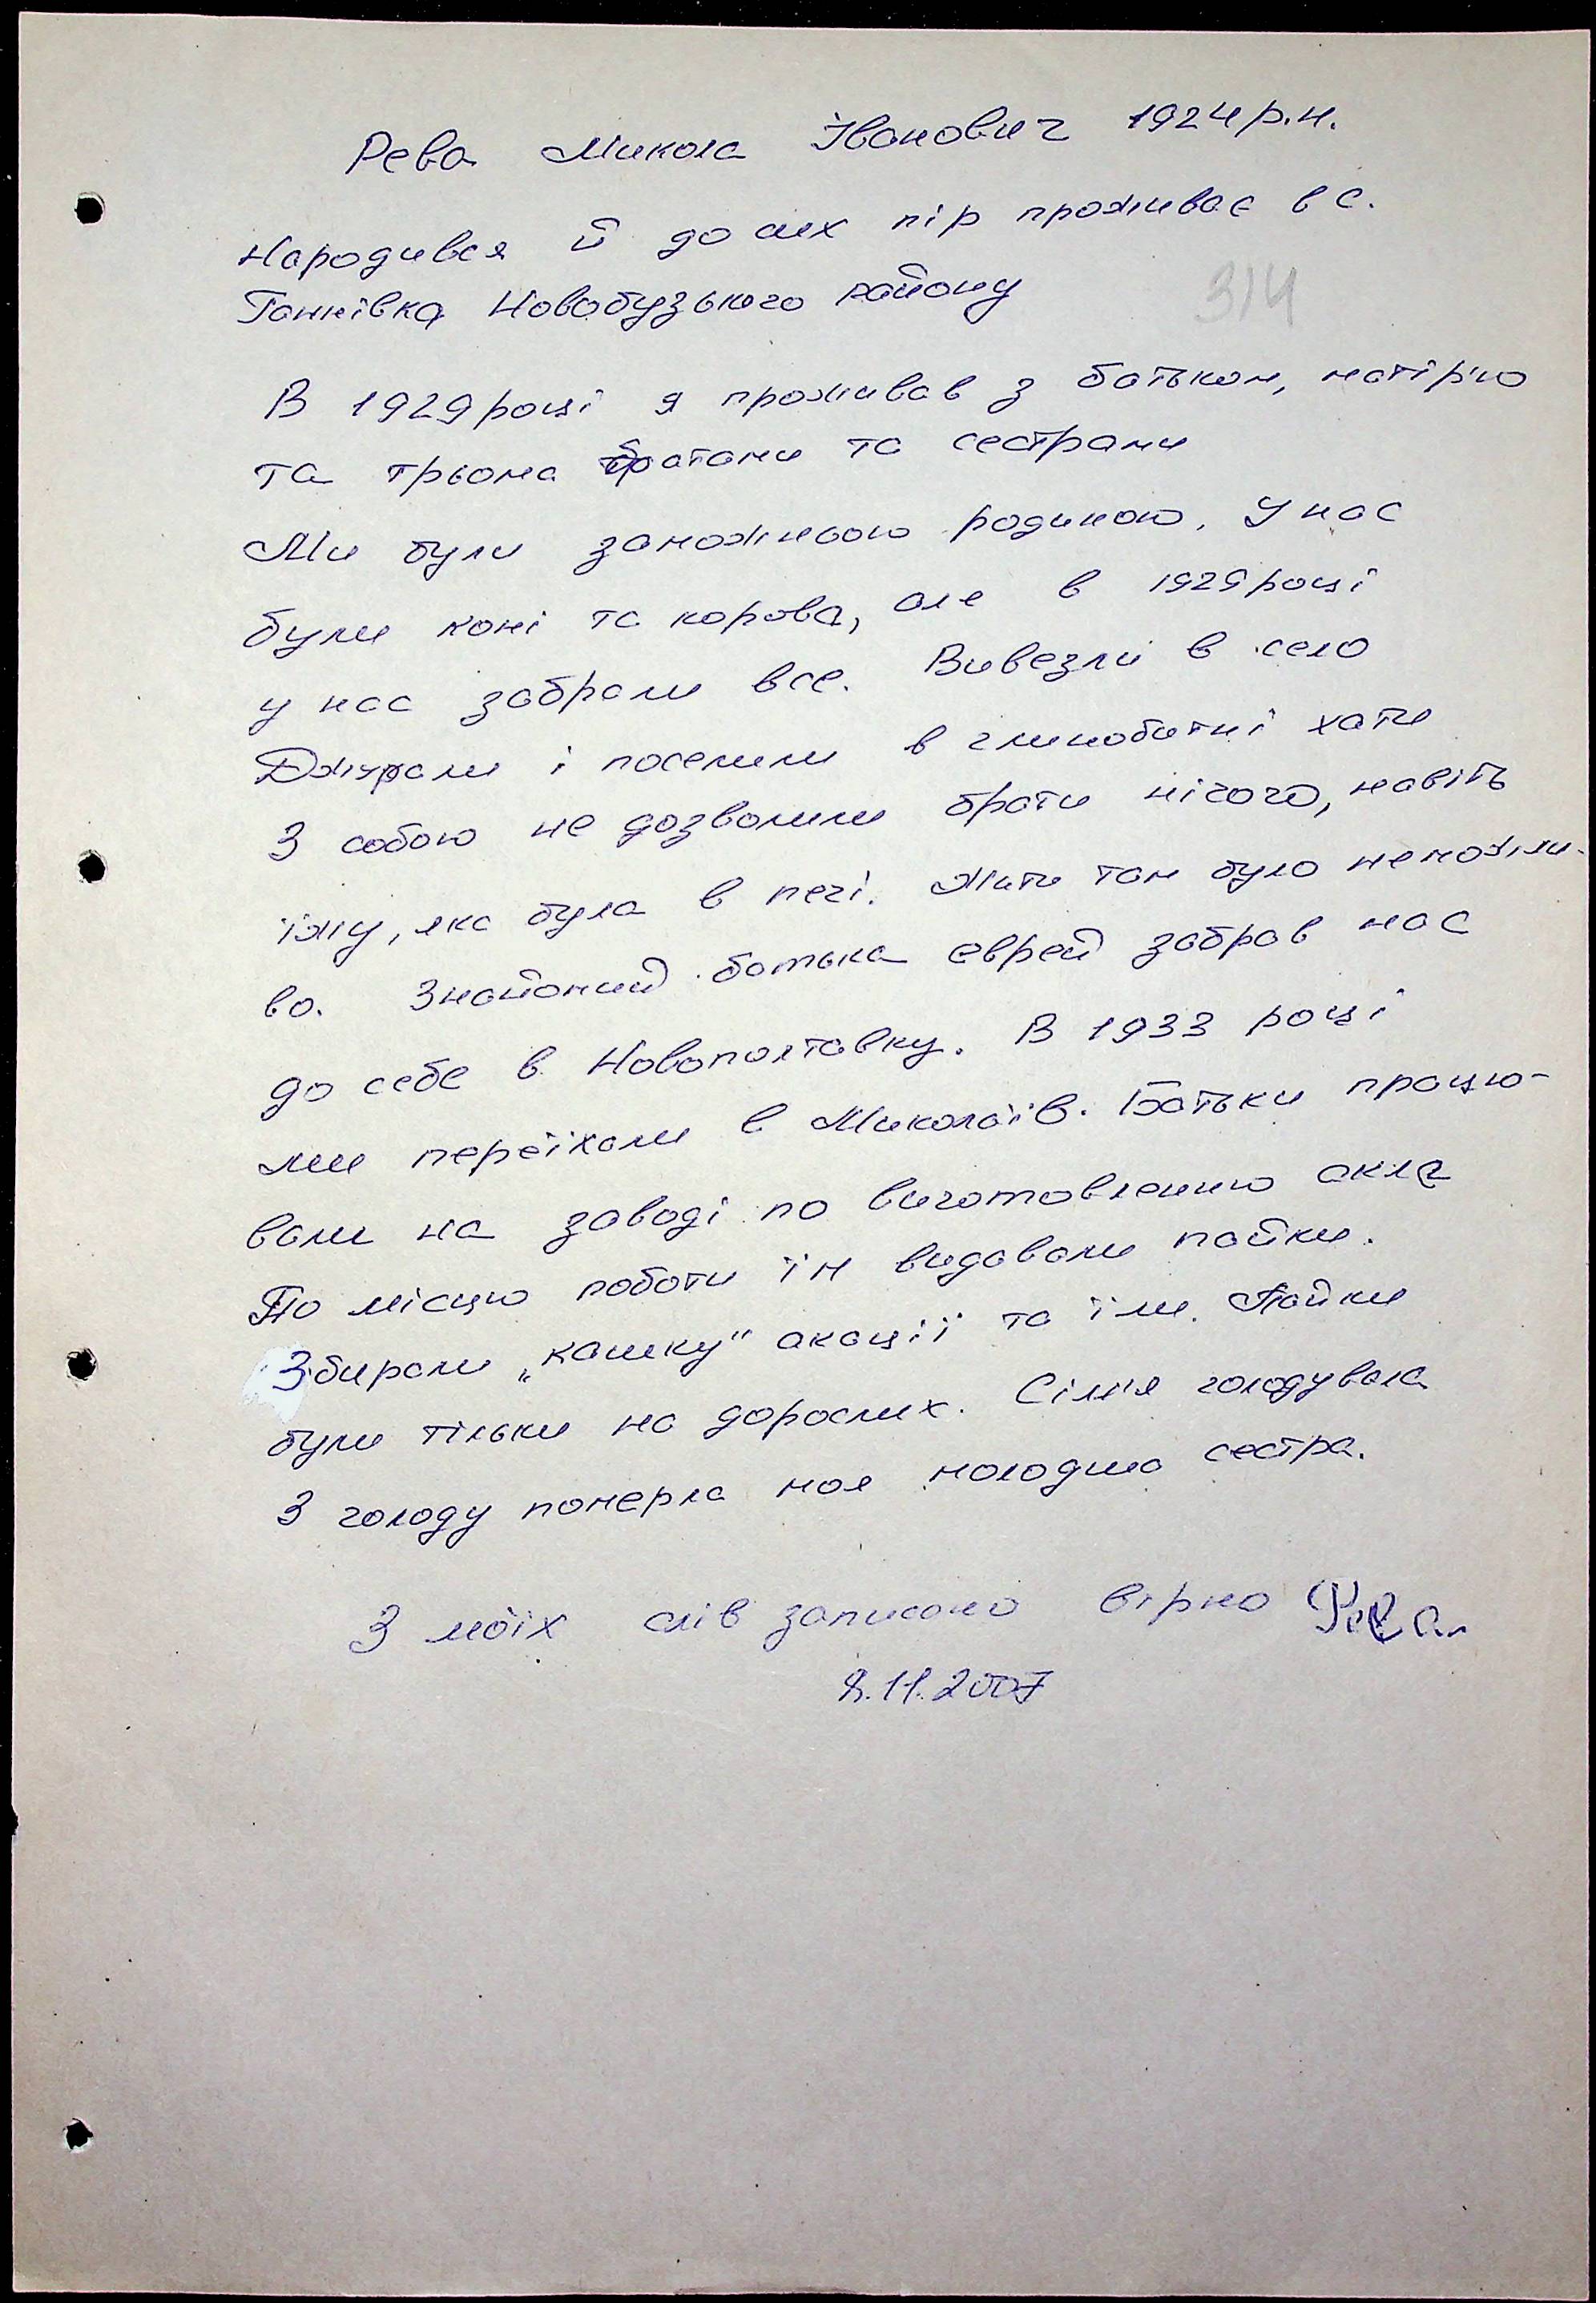 Рева Микола Іванович 1924 р.н.
Народився й до сих пір проживає в с.
Ганнівка Новобузького району
314
В 1929 році я проживав з батьком, матір'ю
та трьома братами та сестрами
Ми були заможньою родиною. У нас
були коні та корова, але в 1929 році
у нас забрали все. Вивезли в село
і поселили в глинобитні хати
З собою не дозволили брати нічого, навіть
їжу, яка була в печі. Жити там було неможли-
во. Знайомий батька єврей забрав нас
до себе в Новополтавку. В 1933 році
ми переїхали в Миколаїв. Батьки працю-
вали на заводі по виготовленню скла
По місцю роботи їм видавали пайки.
Збирали „кашку" акації та їли. Пайки
були тільки на дорослих. Сім'я голодувала
З голоду померла моя молодша сестра.
З моїх слів записано вірно Рева
8.11.2007